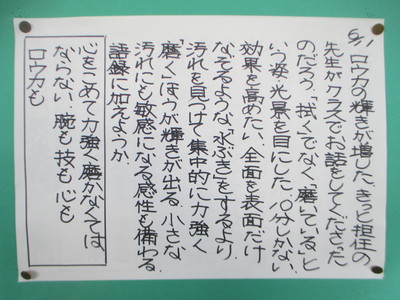 5/11 ロウカの輝きが増した。きっと担任の
先生がクラスでお話をしてくださった
のだろう。「拭く」でなく「磨いている」と
いう姿、光景を目にした。10分しかない。
効果を高めたい。全面を表面だけ
なぞるような「水ぶき」をするより
汚れを見つけて集中的に力強く
「磨く」ほうが輝きが出る。小さな
汚れにも敏感になる感性も備わる。
語録に加えようか。
心をこめて力強く磨かなくては
ならない。腕も技も心も
ロウカも